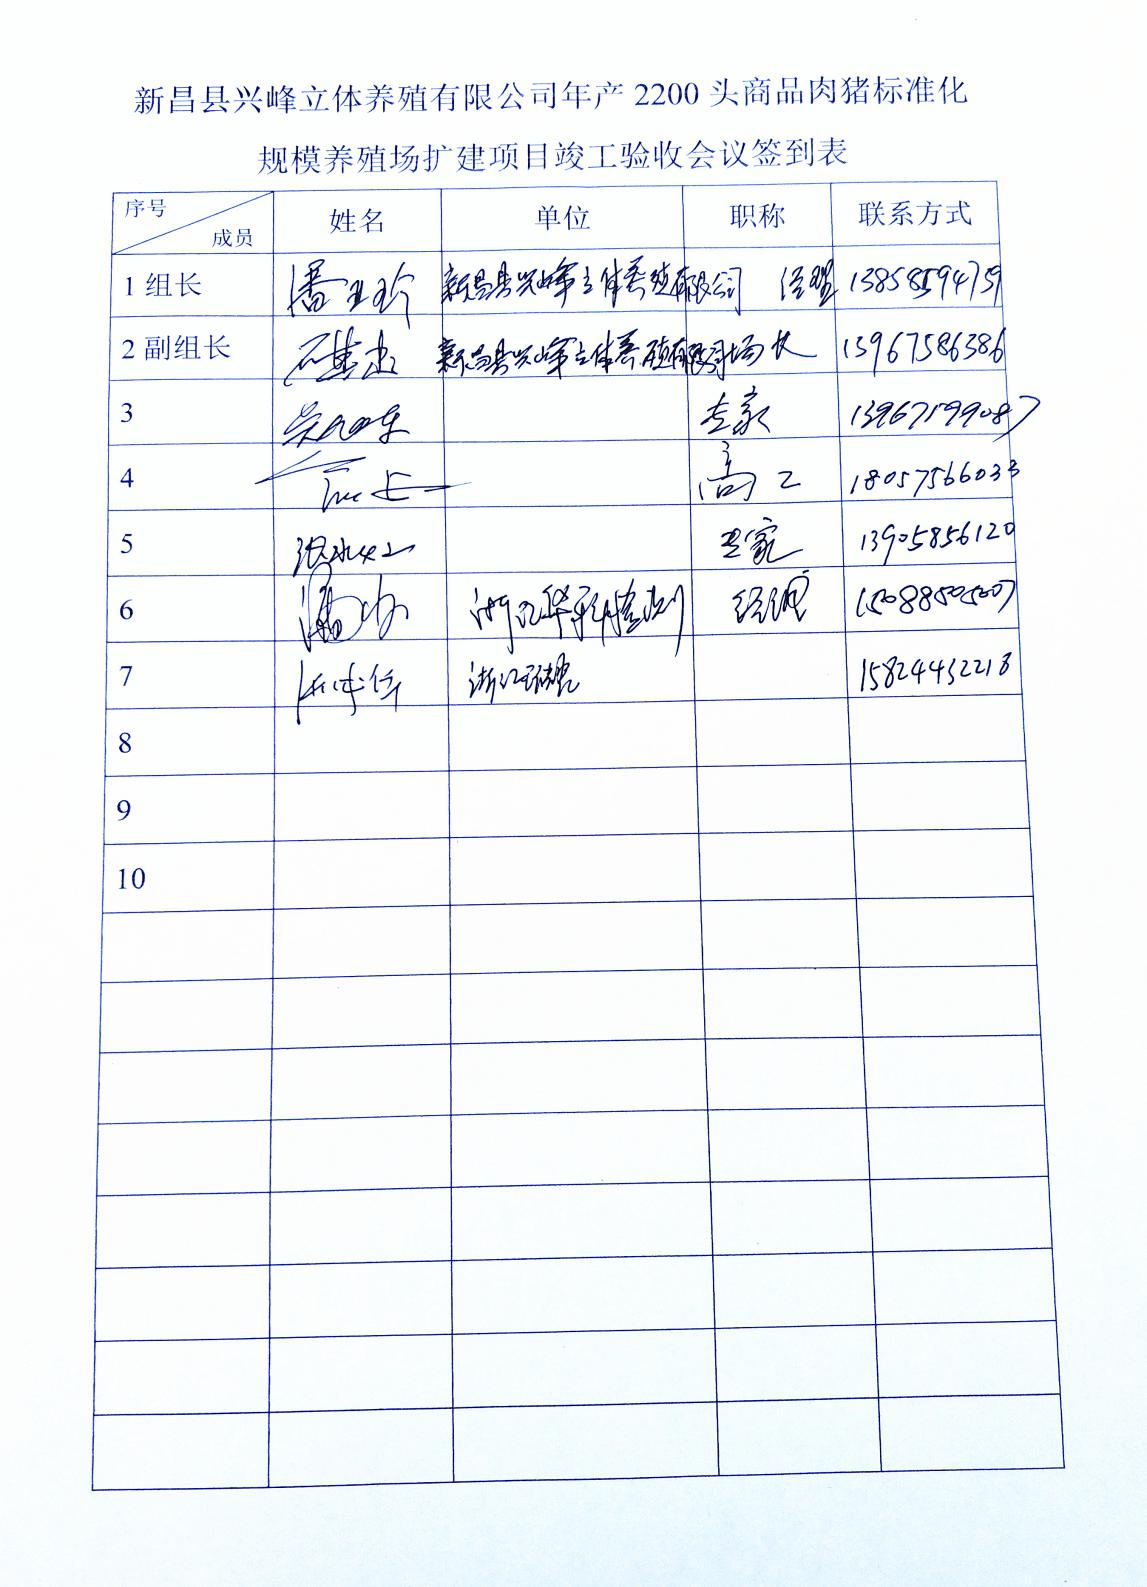 新昌县兴峰立体养殖有限公司年产 2200 头商品肉猪标准化
规模养殖场扩建项目竣工验收会议签到表
序号 成员 姓名 单位 职称 联系方式
1 组长 潘 新昌县兴峰立体养殖有限公司 经理 13858594759
2 副组长 新昌县兴峰立体养殖有限公司 场长 13967586386
3 专家 13967199087
4 高工 18057566033
5 专家 13905856120
6 潘 浙江华 检测 经理 15088505007
7 浙江 15824432218
8
9
10